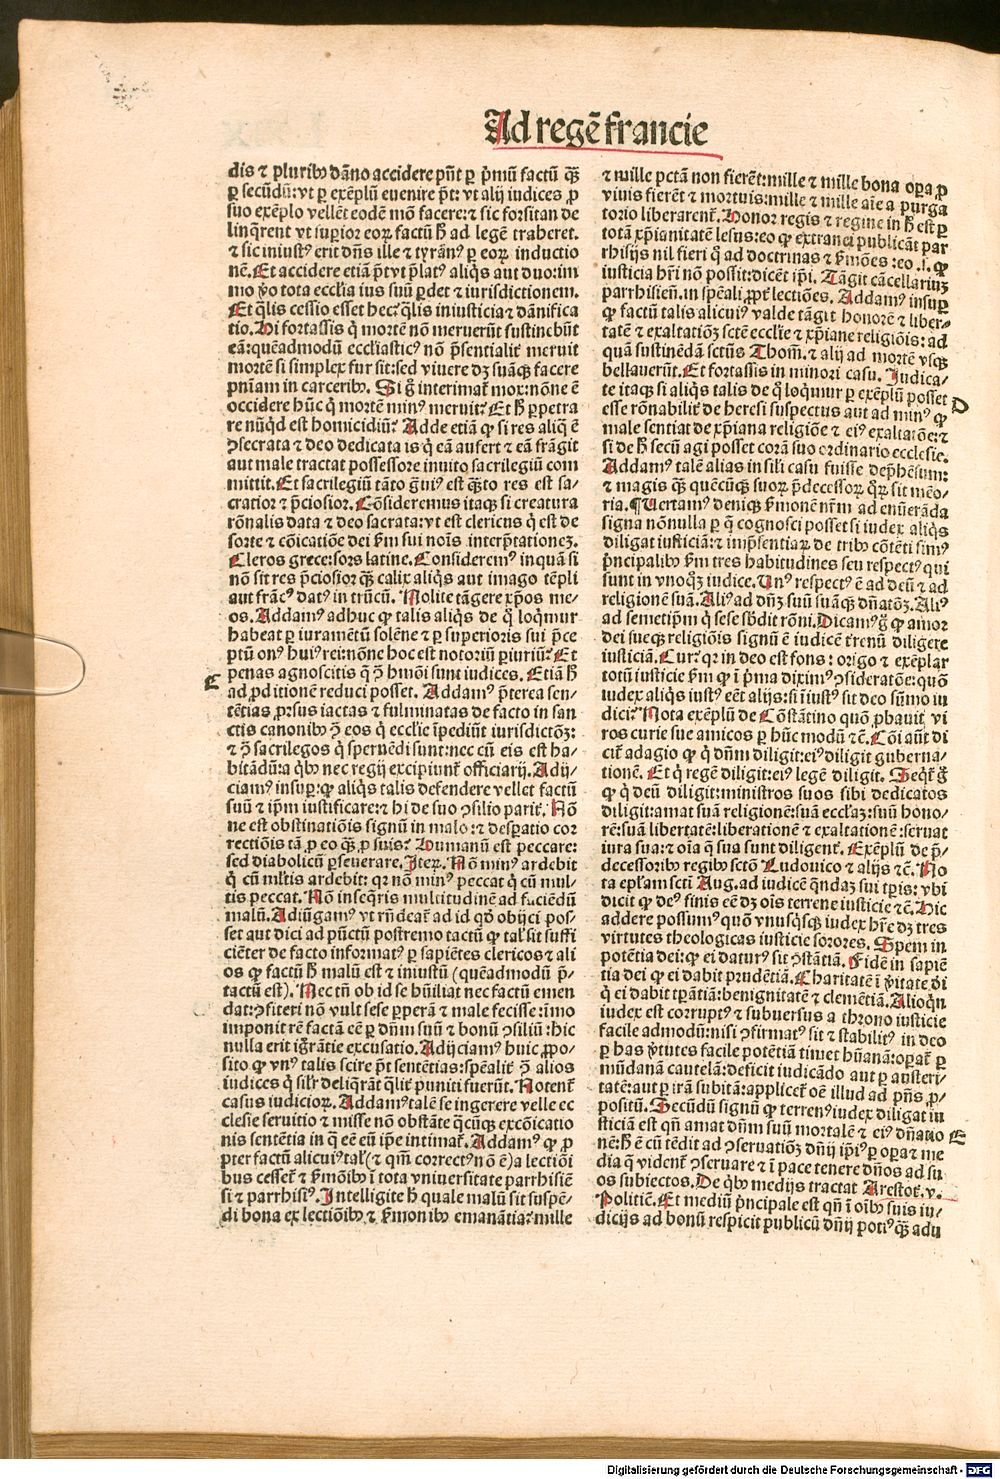 Ad regē francie
dis ⁊ pluribꝰ dāno accidere pn̄t ꝑ p̄mū factū q̄ꝫ
ꝑ secūdū: vt ꝑ exēplū euenire pt̄: vt alij iudices ꝓ
suo exēplo vellēt eodē mō facere: ⁊ sic forsitan de
linq̄rent vt suꝑior eoꝝ factū h̄ ad legē traheret.
⁊ sic iniustꝰ erit dn̄s ille ⁊ tyrānꝰ ꝑ eoꝝ inductio
nē. Et accidere etiā pt̄ vt p̄latꝰ aliq̄s aut duo: im
mo v̄o tota eccl̄ia ius suū ꝑdet ⁊ iurisdictionem.
Et q̄lis cessio esset hec: q̄lis iniusticia ⁊ dānifica
tio. Hi fortassis q̇ mortē nō meruerūt sustinebūt
eā: quēadmodū eccl̄iasticꝰ nō p̄sentialit̄ meruit
mortē si simplex fur sit: sed viuere dꝫ suāq̄ꝫ facere
pn̄iam in carceribꝰ. Si g̊ interimat̄ mox: nōne ē
occidere hūc q̇ mortē minꝰ meruit? Et h̄ ꝑpetra
re nūq̇d est homicidiū? Adde etiā ꝙ si res aliq̄ ē
ꝯsecrata ⁊ deo dedicata is q̇ eā aufert ⁊ eā frāgit
aut male tractat possessore inuito sacrilegiū com
mittit. Et sacrilegiū tāto g̊uiꝰ est q̄ꝫto res est sa-
cratior ⁊ p̄ciosior. Cōsideremus itaqꝫ si creatura
rōnalis data ⁊ deo sacrata: vt est clericus q̇ est de
sorte ⁊ cōicatiōe dei ẜm sui nois̄ interp̄tationeꝫ.
Cleros grece: sors latine. Consideremꝰ inquā si
nō sit res p̄ciosior q̄ꝫ calix aliq̄s aut imago tēpli
aut frācꝰ datꝰ in trūcū. Nolite tāgere xp̄os me-
os. Addamꝰ adhuc ꝙ talis aliq̄s de q̊ loq̄mur
habeat ꝑ iuramētū solēne ⁊ ꝑ superioris sui p̄ce
ptū onꝰ huiꝰ rei: nōne hoc est notoriū ꝑiuriū? Et
penas agnoscitis q̄ ꝯ̄ hmōi sunt iudices. Etiā h̄
ad ꝓditionē reduci posset. Addamꝰ p̄terea sen-
tētias ꝓrsus iactas ⁊ fulminatas de facto in san
ctis canonibꝰ ꝯ̄ eos q̇ eccl̄ie īpediūt iurisdictōꝫ:
⁊ ꝯ̄ sacrilegos q̇ spernēdi sunt: nec cū eis est ha-
bitādū: a q̇bꝰ nec regij excipiunt̄ officiarij. Adij-
ciamꝰ insuꝑ: ꝙ aliq̄s talis defendere vellet factū
suū ⁊ ip̄m iustificare: ⁊ hi de suo ꝯsilio parit̄. Nō
ne est obstinatiōis signū in malo: ⁊ despatio cor
rectiōis tā ꝓ eo q̄ꝫ ꝓ suis? Humanū est peccare:
sed diabolicū ꝑseuerare. Iteꝝ. Nō minꝰ ardebit
q̇ cū ml̄tis ardebit: qꝛ nō minꝰ peccat q̇ cū mul-
tis peccat. Nō inseq̄ris multitudinē ad faciēdū
malū. Adiūgamꝰ vt rn̄deat̄ ad id qd̊ obijci pos-
set aut dici ad pūctū postremo tactū ꝙ tal̄ sit suffi
ciēter de facto informatꝰ ꝑ sapiētes clericos ⁊ ali
os ꝙ factū h̄ malū est ⁊ iniustū (quēadmodū p̄-
tactū est). Nec tn̄ ob id se hūiliat nec factū emen
dat: ꝯfiteri nō vult sese ꝑperā ⁊ male fecisse: imo
imponit rē factā eē ꝑ dn̄m suū ⁊ bonū ꝯsiliū: hic
nulla erit ign̄rātie excusatio. Adijciamꝰ huic ꝓpo-
sito ꝙ vnꝰ talis scire pt̄ sentētias: spēalit̄ ꝯ̄ alios
iudices q̇ silr̄ deliq̄rāt q̄lit̄ puniti fuerūt. Notent̄
casus iudicioꝝ. Addamꝰ talē se ingerere velle ec
clesie seruitio ⁊ misse nō obstāte q̄cūqꝫ excōicatio
nis sentētia in q̄ eē eū ip̄e intimat̄. Addamꝰ ꝙ ꝓ
pter factū alicuiꝰ tal̄ (⁊ qm̄ correctꝰ nō ē) a lectiōi
bus cesset̄ ⁊ ẜmōibꝰ ī tota vniuersitate parrhisiē
si ⁊ parrhisiꝰ. Intelligite h̄ quale malū sit suspē-
di bona ex lectiōibꝰ ⁊ ẜmonibꝰ emanātia: mille
E
⁊ mille pctā non fierēt: mille ⁊ mille bona oꝑa ꝓ
viuis fierēt ⁊ mortuis: mille ⁊ mille aīe a purga
torio liberarent̄. Honor regis ⁊ regine in h̄ est ꝑ
totā xp̄ianitatē lesus: eo ꝙ extranei publicāt par
rhisijs nil fieri q̊ ad doctrinas ⁊ ẜmōes: eo .s. ꝙ
iusticia hr̄i nō possit: dicēt ip̄i. Tāgit cācellariuꝫ
parrhisien̄. in spēali ꝓpt̄ lectiōes. Addamꝰ insuꝑ
ꝙ factū talis alicuiꝰ valde tāgit honorē ⁊ liber-
tatē ⁊ exaltatiōꝫ scte eccl̄ie ⁊ xp̄iane religiōis: ad
quā sustinēdā sctūs Thom̄. ⁊ alij ad mortē vsqꝫ
bellauerūt. Et fortassis in minori casu. Iudica-
te itaqꝫ si aliq̄s talis de q̊ loq̄mur ꝑ exēplū posset
esse rōnabilit̄ de heresi suspectus aut ad minꝰ ꝙ
male sentiat de xp̄iana religiōe ⁊ eiꝰ exaltatōe: ⁊
si de h̄ secū agi posset corā suo ordinario ecclesie.
Addamꝰ talē alias in sili casu fuisse dep̄hēsum:
⁊ magis q̄ꝫ quēcūqꝫ suoꝝ p̄decessoꝝ q̊ꝝ sit mēo-
ria. ¶ Uertamꝰ deniqꝫ ẜmonē nr̄m ad enūerāda
signa nōnulla ꝑ q̄ cognosci posset si iudex aliq̄s
diligat iusticiā: ⁊ imp̄sentiaꝝ de tribꝰ cōtēti simꝰ
p̄ncipalibꝰ ẜm tres habitudines seu respectꝰ qui
sunt in vnoqꝫ iudice. Unꝰ respectꝰ ē ad deū ⁊ ad
religionē suā. Aliꝰ ad dn̄ꝫ suū suāqꝫ dn̄atōꝫ. Aliꝰ
ad semetip̄m q̇ sese sb̄dit rōni. Dicamꝰ g̊ ꝙ amor
dei sueqꝫ religiōis signū ē iudicē trenū diligere
iusticiā. Cur? qꝛ in deo est fons: origo ⁊ exēplar
totiꝰ iusticie ẜm ꝙ ī p̄ma diximꝰ ꝯsideratōe: quō
iudex aliq̄s iustꝰ eēt alijs: si īiustꝰ sit deo sūmo iu
dici? Nota exēplū de Cōstātino quō ꝓbauit vi
ros curie sue amicos ꝑ hūc modū ⁊ē. Cōi aūt di
cit̄ adagio ꝙ q̇ dn̄m diligit: eiꝰ diligit guberna-
tionē. Et q̇ regē diligit: eiꝰ legē diligit. Seq̄t̄ g̊
ꝙ q̇ deū diligit: ministros suos sibi dedicatos
diligit: amat suā religionē: suā eccl̄aꝫ: suū hono-
rē: suā libertatē: liberationē ⁊ exaltationē: seruat
iura sua: ⁊ oīa q̄ sua sunt diligent̄. Exēplū de p̄-
decessoribꝰ regibꝰ sctō Ludouico ⁊ alijs ⁊c̄. No
ta epl̄am scti Aug. ad iudicē q̄ndaꝫ sui tp̄is: vbi
dicit ꝙ deꝰ finis eē dꝫ ois terrene iusticie ⁊c̄. Hic
addere possumꝰ quō vnusq̇sqꝫ iudex hr̄e dꝫ tres
virtutes theologicas iusticie sorores. Spem in
potētia dei: ꝙ ei daturꝰ sit ꝯstātiā. Fidē in sapiē
tia dei ꝙ ei dabit prudētiā. Charitatē ī v̄itate di
q̇ ei dabit tꝑātiā: benignitatē ⁊ clemētiā. Alioq̇n
iudex est corruptꝰ ⁊ subuersus a throno iusticie
facile admodū: nisi ꝯfirmatꝰ sit ⁊ stabilitꝰ in deo
ꝑ has v̄tutes facile potētiā timet hūanā: oꝑat̄ ꝑ
mūdanā cautelā: deficit iudicādo aut ꝑ austeri-
tatē: aut ꝑ irā subitā: applicet̄ oē illud ad pn̄s ꝓ-
positū. Secūdū signū ꝙ terrenꝰ iudex diligat iu
sticiā est qn̄ amat dn̄m suū mortalē ⁊ eiꝰ dn̄atio
nē: h̄ ē cū tēdit ad ꝯseruatiōꝫ dn̄ij ip̄iꝰ ꝑ oꝑa ⁊ me
dia q̄ vident̄ ꝯseruare ⁊ ī pace tenere dn̄os ad su
os subiectos. De q̇bꝰ medijs tractat Arestot̄. v.
Politiē. Et mediū p̄ncipale est qn̄ ī oībꝰ suis iu-
dicijs ad bonū respicit publicū dn̄ij potiꝰ q̄ꝫ adu
D
E
Digitalisierung gefördert durch die Deutsche Forschungsgemeinschaft - DFG